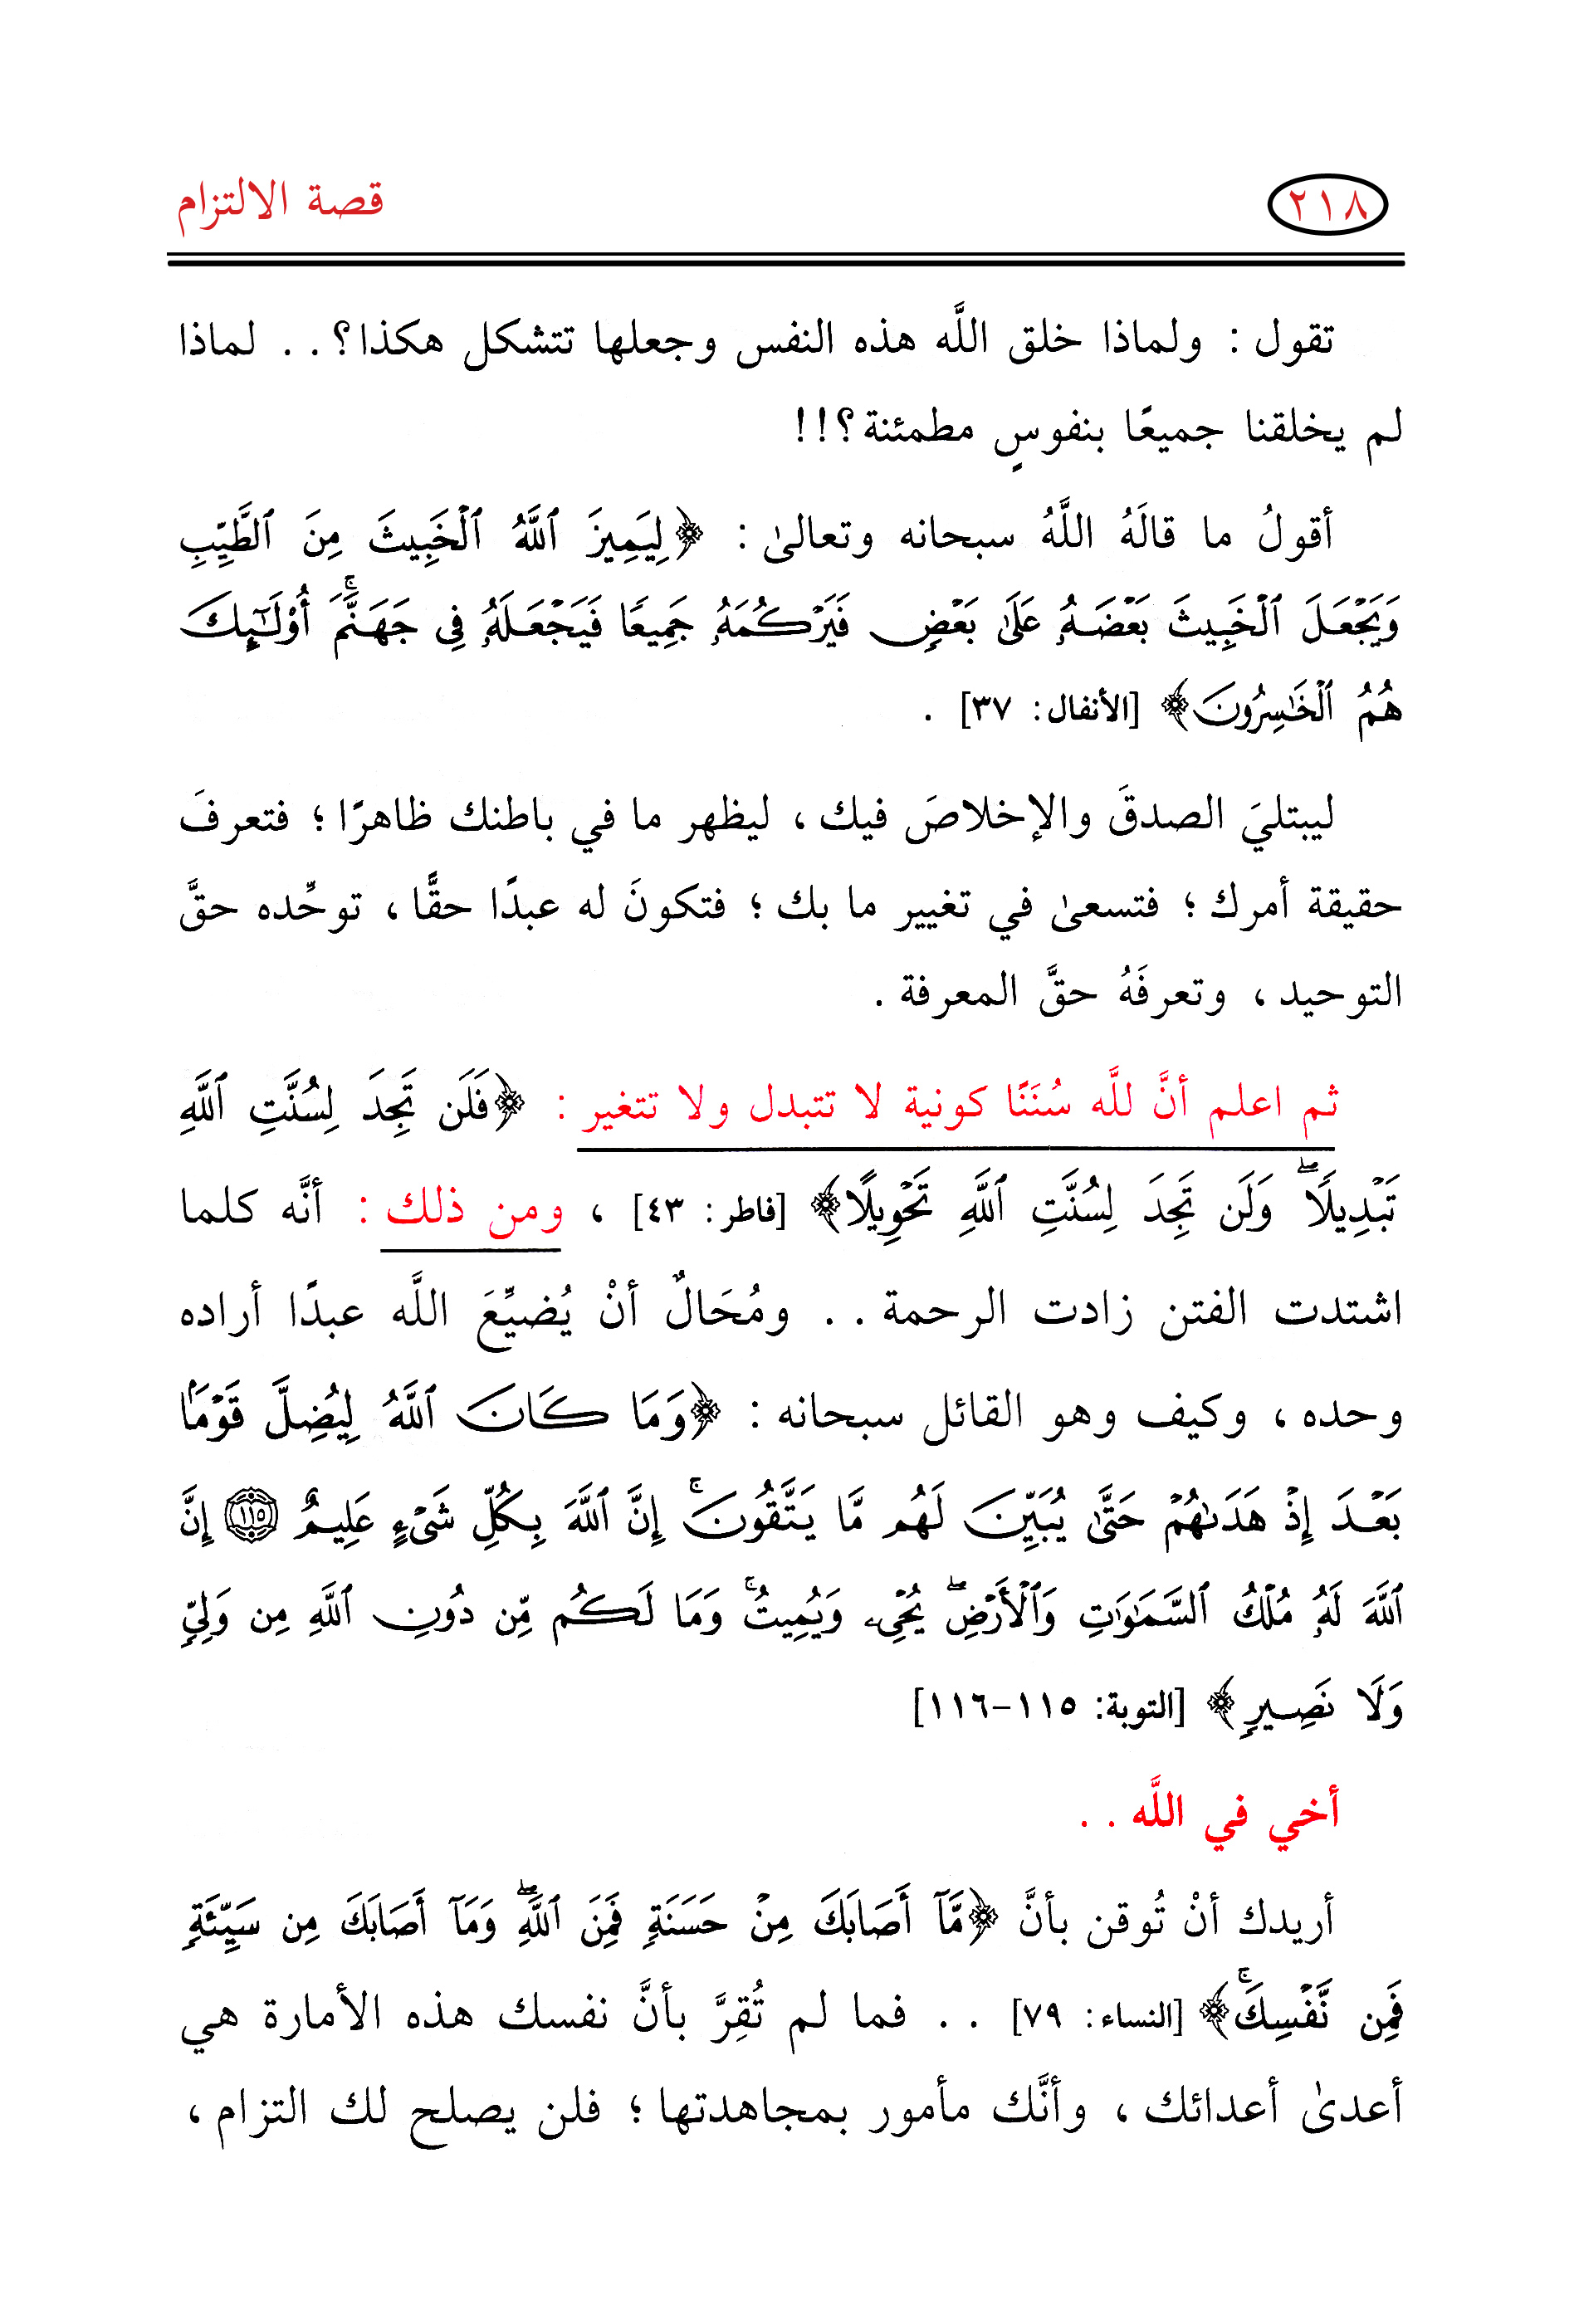 ٢١٨ قصة الالتزام
تقول : ولماذا خلق اللَّه هذه النفس وجعلها تتشكل هكذا؟ . . لماذا
لم يخلقنا جميعًا بنفوسٍ مطمئنة؟!!
أقولُ ما قالَهُ اللَّهُ سبحانه وتعالىٰ : ﴿لِيَمِيزَ ٱللَّهُ ٱلْخَبِيثَ مِنَ ٱلطَّيِّبِ
وَيَجْعَلَ ٱلْخَبِيثَ بَعْضَهُۥ عَلَىٰ بَعْضٍ فَيَرْكُمَهُۥ جَمِيعًا فَيَجْعَلَهُۥ فِى جَهَنَّمَ ۚ أُو۟لَـٰٓئِكَ
هُمُ ٱلْخَـٰسِرُونَ﴾ [الأنفال: ٣٧] .
ليبتليَ الصدقَ والإخلاصَ فيك ، ليظهر ما في باطنك ظاهرًا ؛ فتعرفَ
حقيقة أمرك ؛ فتسعىٰ في تغيير ما بك ؛ فتكونَ له عبدًا حقًّا ، توحِّده حقَّ
التوحيد ، وتعرفَهُ حقَّ المعرفة .
ثم اعلم أنَّ للَّه سُنَنًا كونية لا تتبدل ولا تتغير : ﴿فَلَن تَجِدَ لِسُنَّتِ ٱللَّهِ
تَبْدِيلًا ۖ وَلَن تَجِدَ لِسُنَّتِ ٱللَّهِ تَحْوِيلًا﴾ [فاطر: ٤٣] ، ومن ذلك : أنَّه كلما
اشتدت الفتن زادت الرحمة . . ومُحَالٌ أنْ يُضيِّعَ اللَّه عبدًا أراده
وحده ، وكيف وهو القائل سبحانه : ﴿وَمَا كَانَ ٱللَّهُ لِيُضِلَّ قَوْمَۢا
بَعْدَ إِذْ هَدَىٰهُمْ حَتَّىٰ يُبَيِّنَ لَهُم مَّا يَتَّقُونَ ۚ إِنَّ ٱللَّهَ بِكُلِّ شَىْءٍ عَلِيمٌ ١١٥ إِنَّ
ٱللَّهَ لَهُۥ مُلْكُ ٱلسَّمَـٰوَٰتِ وَٱلْأَرْضِ ۖ يُحْىِۦ وَيُمِيتُ ۚ وَمَا لَكُم مِّن دُونِ ٱللَّهِ مِن وَلِىٍّ
وَلَا نَصِيرٍ﴾ [التوبة: ١١٥-١١٦]
أخي في اللَّه . .
أريدك أنْ تُوقن بأنَّ ﴿مَّآ أَصَابَكَ مِنْ حَسَنَةٍ فَمِنَ ٱللَّهِ ۖ وَمَآ أَصَابَكَ مِن سَيِّئَةٍ
فَمِن نَّفْسِكَ ۚ﴾ [النساء: ٧٩] . . فما لم تُقِرَّ بأنَّ نفسك هذه الأمارة هي
أعدىٰ أعدائك ، وأنَّك مأمور بمجاهدتها ؛ فلن يصلح لك التزام ،